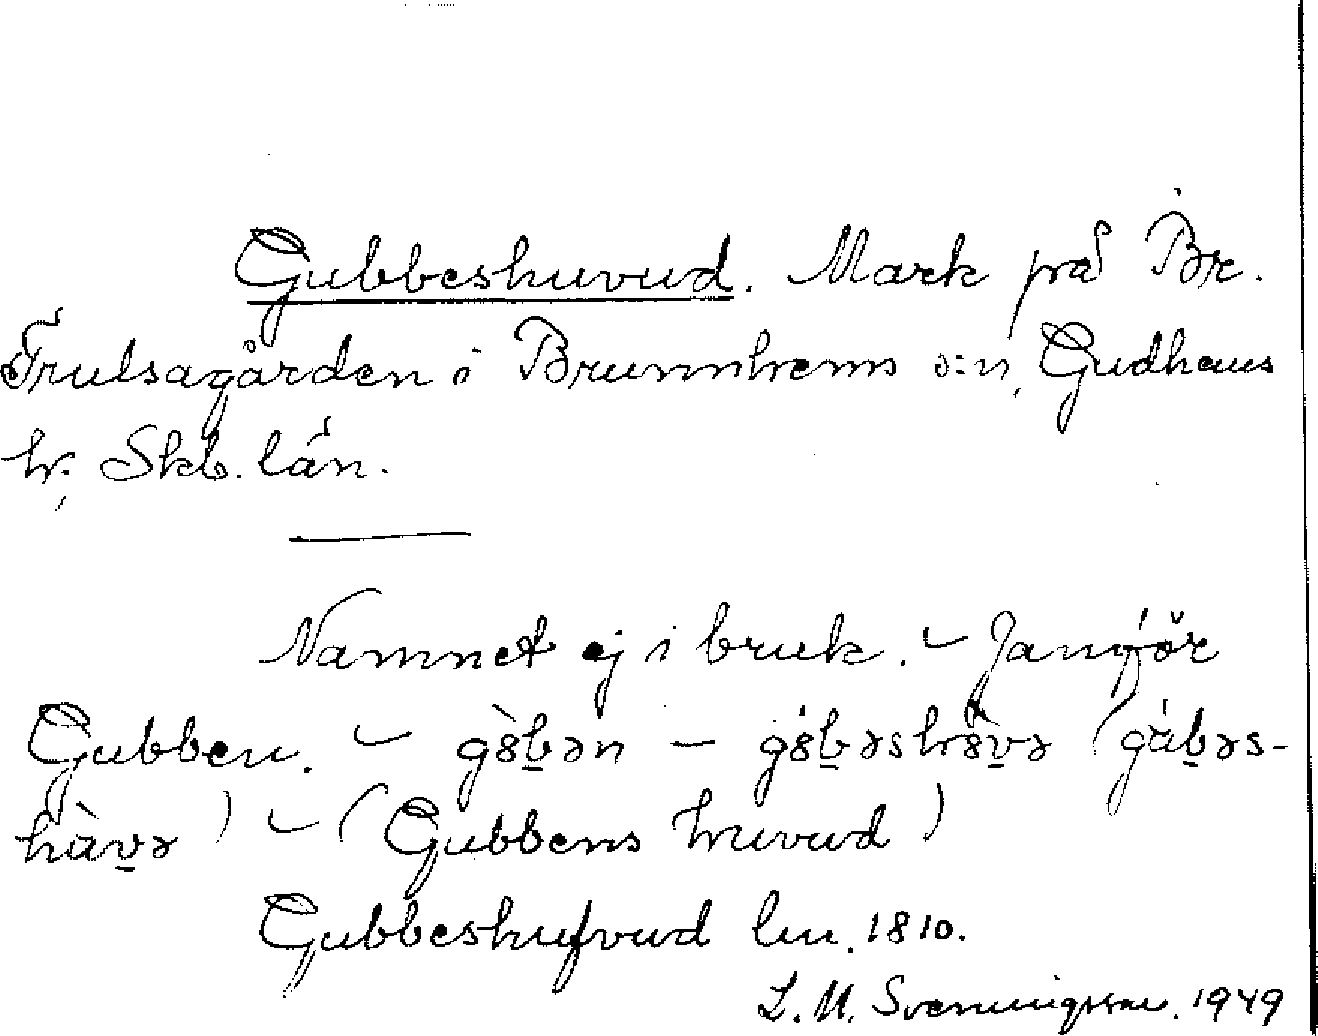 Gubbeshuvud. Mark på Br.
Trulsagården i Brunnhems s:n, Gudhems
hr, Skb. län.
Namnet ej i bruk. – Jämför
Gubben. – gòb̲ən – gób̲əshòv̲ə (gáb̲əs-
hàv̲ə) – (Gubbens huvud)
Gubbeshufvud lm. 1810.
L. M. Svenungsson. 1949